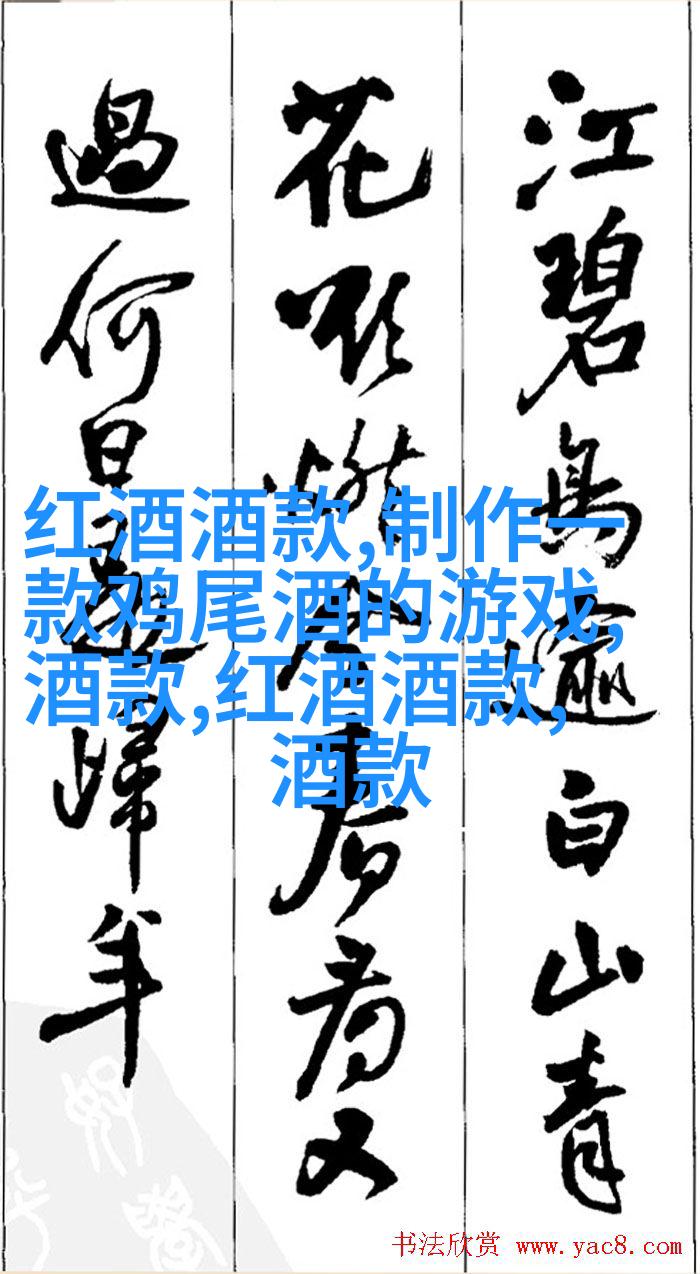 江碧鳥逾白山青
花欲燃今春看又
過何日是歸年
红酒酒款,制作一
款鸡尾酒的游戏,
酒款,红酒酒款,
酒款
书法欣赏 www.yac8.com